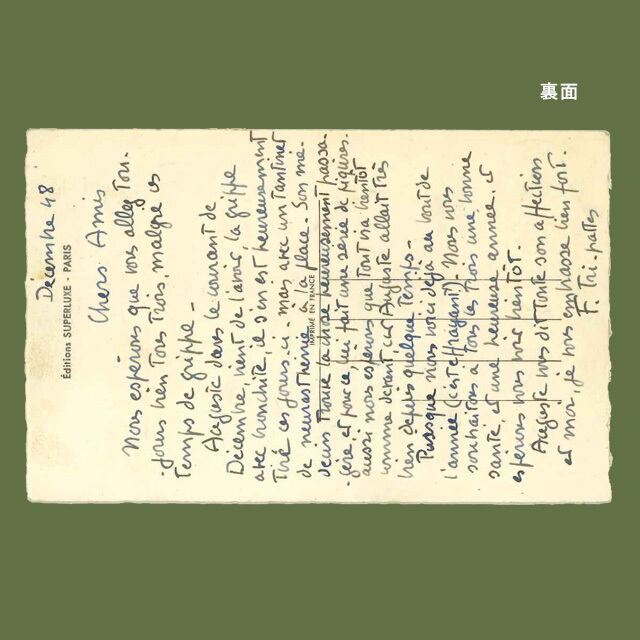 裏面
Décembre 48
Éditions SUPERLUXE - PARIS
IMPRIMÉ EN FRANCE
Chers Amis
Nous espérons que vous allez tou-
-jours bien tous trois, malgré ces
temps de grippe -
Auguste dans le courant de
Décembre, vient de l'avoir la grippe
avec bronchite, il s'en est heureusement
tiré ces jours-ci - mais avec un tantinet
de neurasthénie à la place. Son mé-
decin trouve la chose heureusement passa-
-gère, et pour ce, lui fait une série de piqûres.
aussi nous espérons que tout ira bientôt
comme devant, car Auguste allait très
bien depuis quelque temps -
Puisque nous voici déjà au bout de
l'année (c'est effrayant !) - Nous vous
souhaitons à tous les trois une bonne
santé, et une heureuse année, et
espérons vous voir bientôt.
Auguste vous dit toute son affection
et moi, je vous embrasse bien fort.
F. Tri-pattes